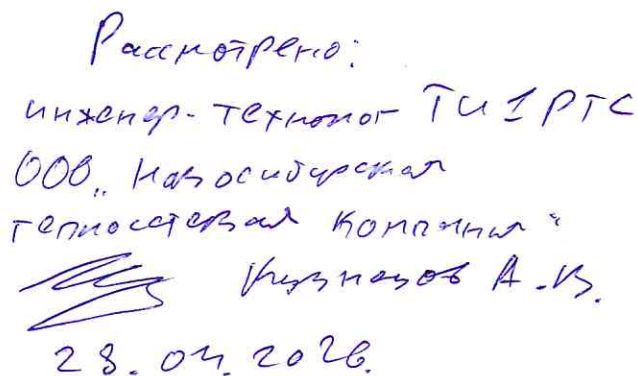 Рассмотрено:
инженер-технолог ТИ 1 РТС
ООО „Новосибирская
теплосетевая компания“
Кузнецов А.В.
28.04.2026.